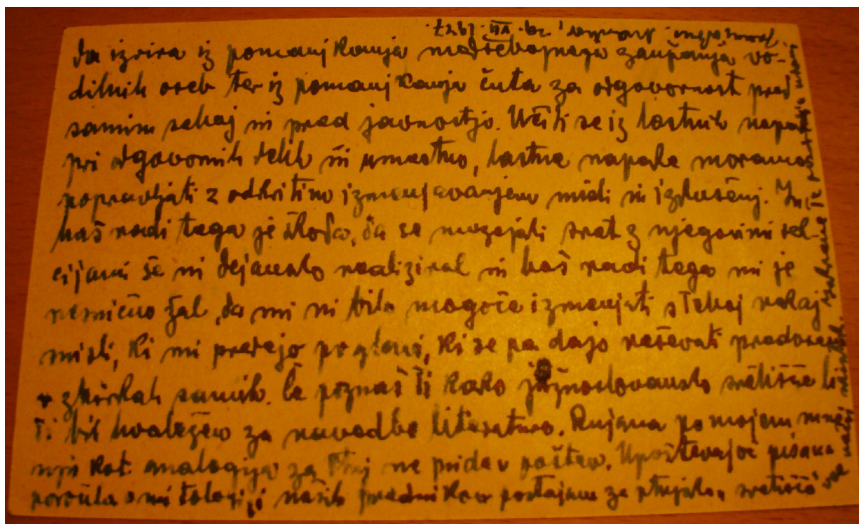 da izvira iz pomanjkanja medsebojnega zaupanja vo-
dilnih oseb ter iz pomanjkanja čuta za odgovornost pred
samim seboj in pred javnostjo. Učiti se iz lastnih napak
pri odgovornih delih ni umestno, lastne napake moramo
popravljati z odkritim izmenjavanjem misli in izkušenj.
baš radi tega je škoda, da se muzejski svet z njegovimi sek-
cijami še ni dejansko realiziral in baš radi tega mi je
resnično žal, da mi ni bilo mogoče izmenjati s Teboj nekaj
misli, ki mi po glavi, ki se pa dajo reševati
v samih. Če poznaš Ti kako južnoslovansko svetišče
Ti bil hvaležen za navedbo literature. Rujana po mojem
kot analogija za Ptuj ne pride v poštev. Upoštevajoč pisana
poročila o mitologiji naših prednikov postajam za ptujsko svetišče